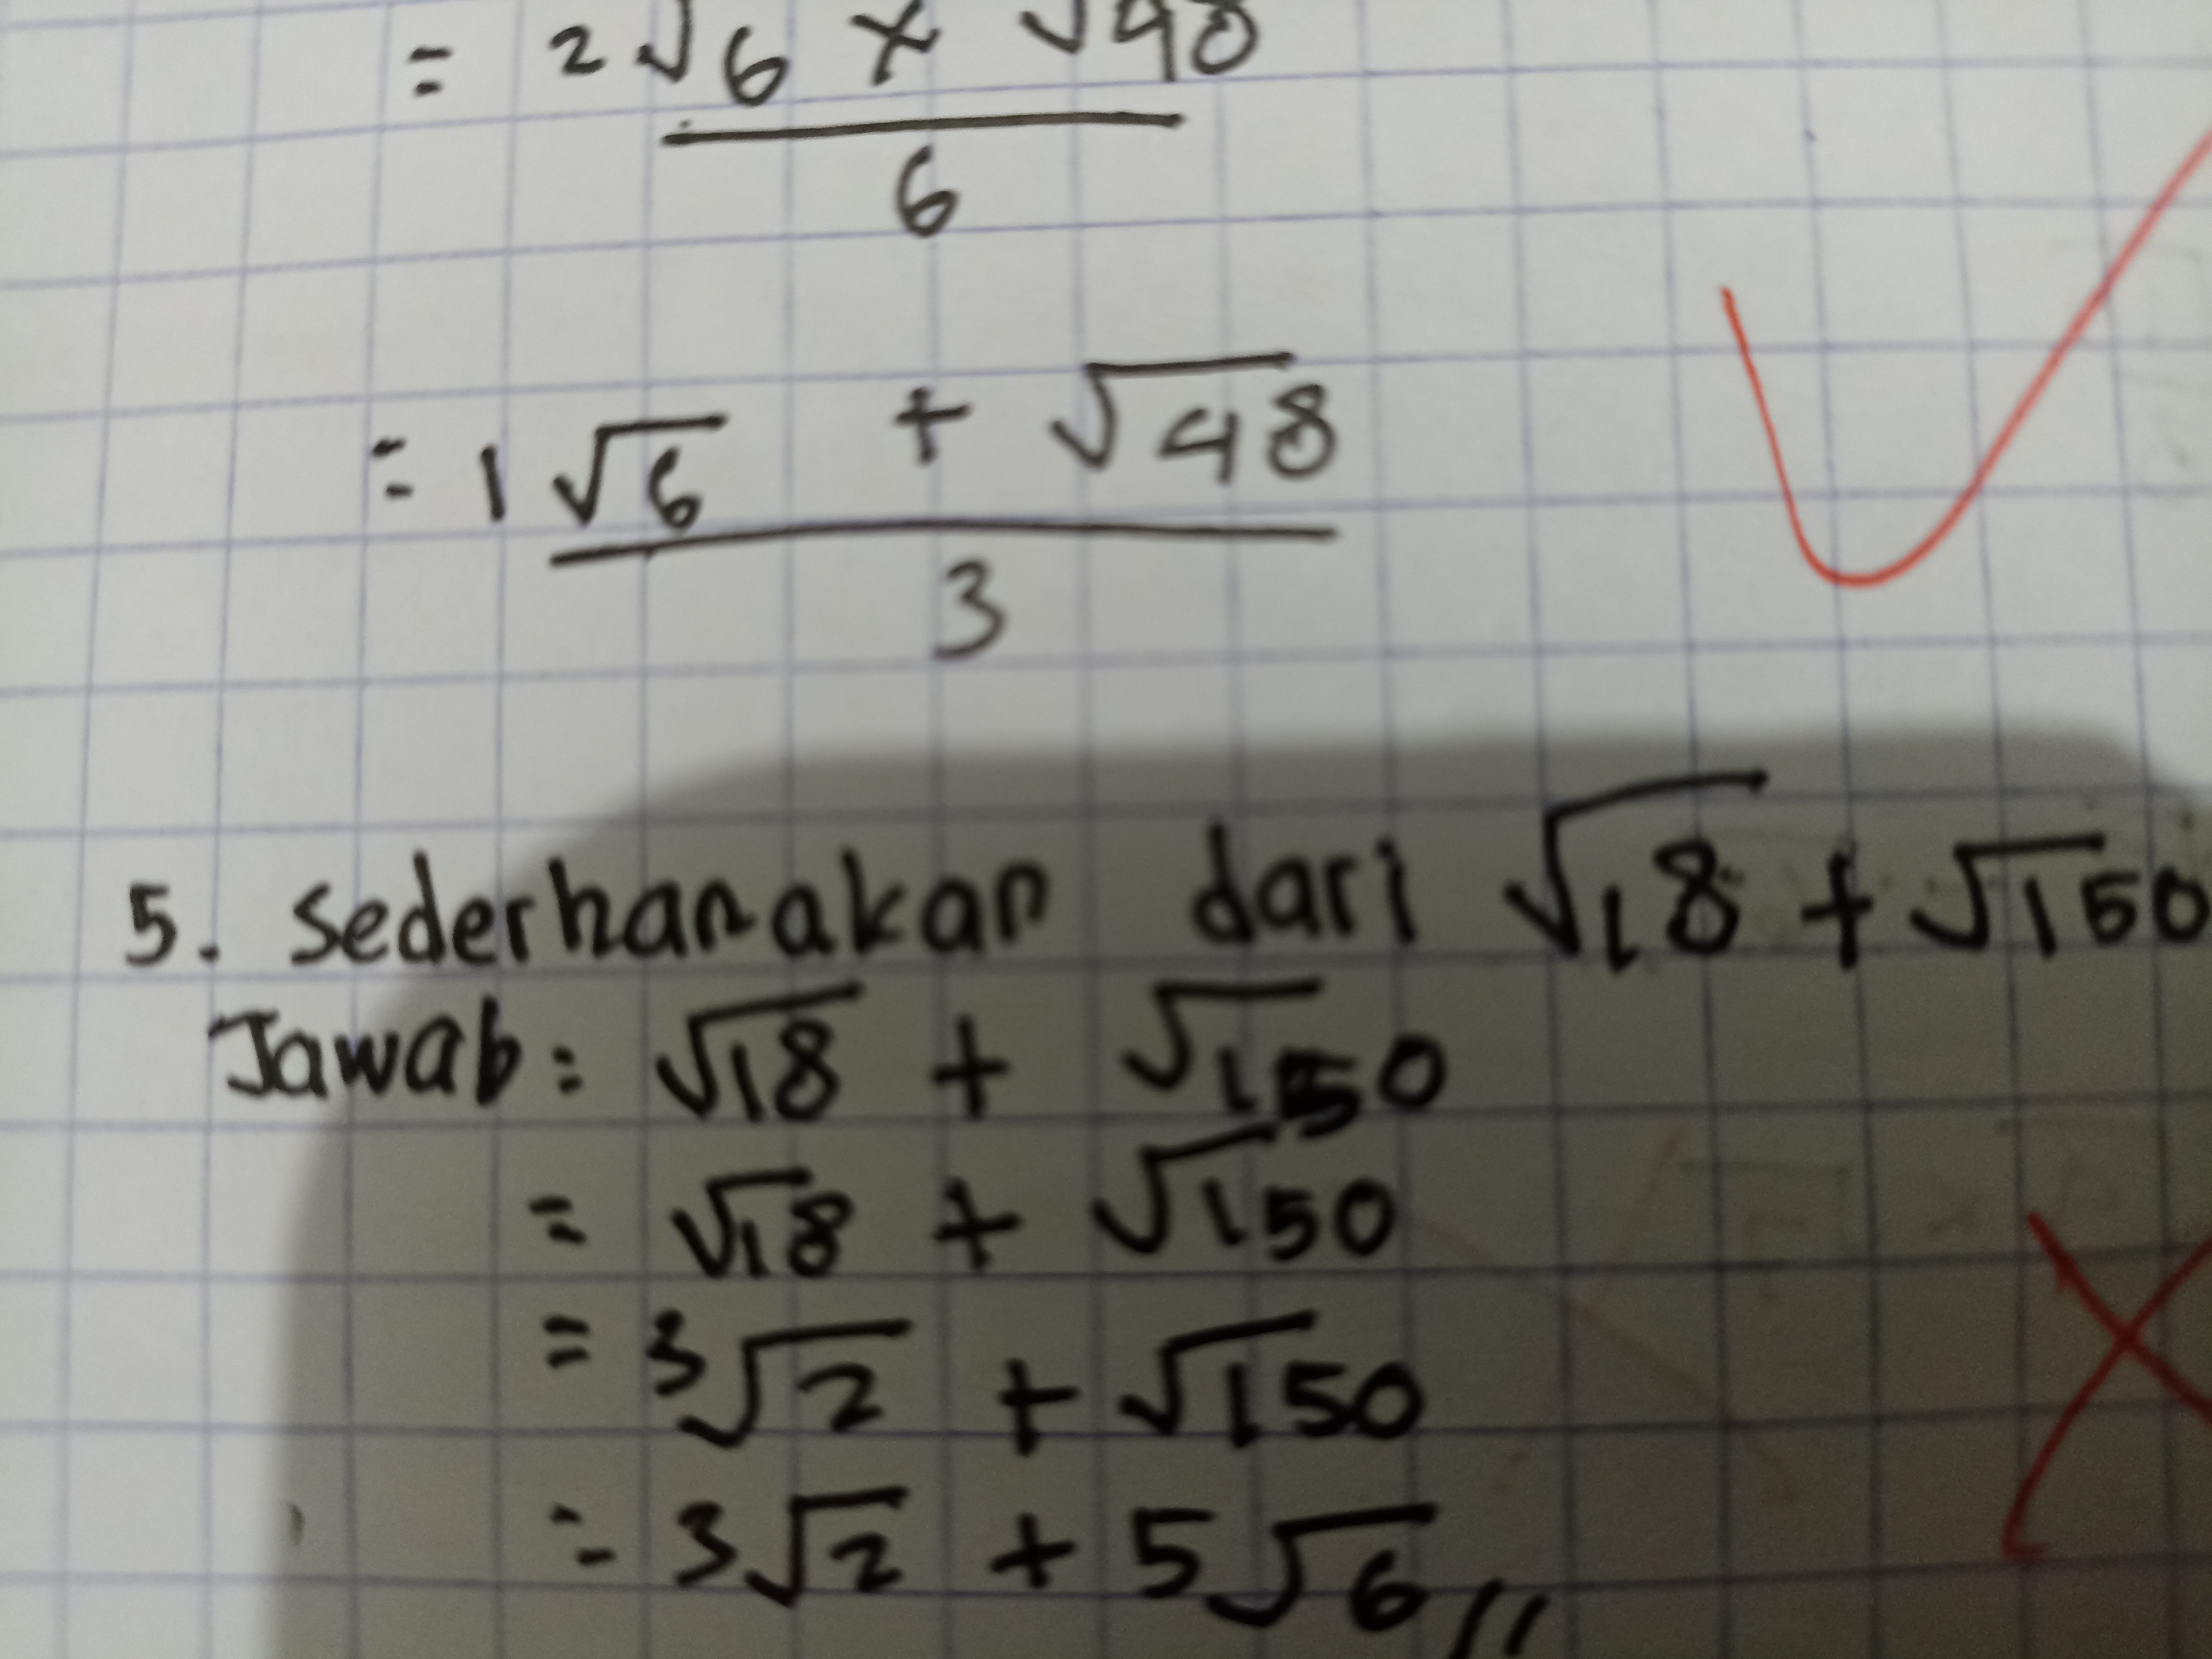 = 2√6 × √48
6
= 1√6 + √48
3
5. Sederhanakan dari √18 + √150
Jawab: √18 + √150
= √18 + √150
= 3√2 + √150
= 3√2 + 5√6 //